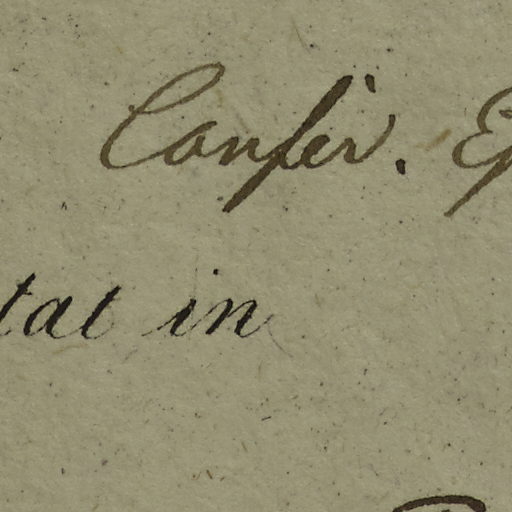 Confer. E
tat in